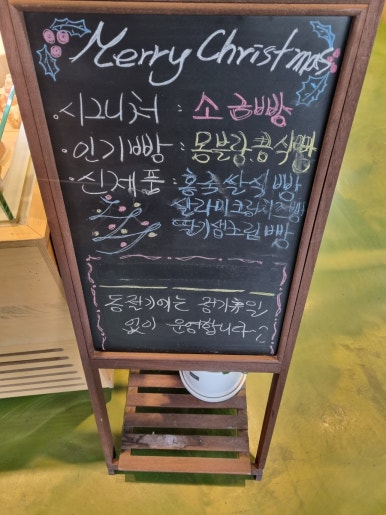 Merry Christmas
·시그니처 : 소금빵
·인기빵 : 몽블랑.콩식빵
·신제품 : 홍국쌀식빵
살라미크림치즈빵
딸기잼크림빵
동절기에는 정기휴일
없이 운영합니다~